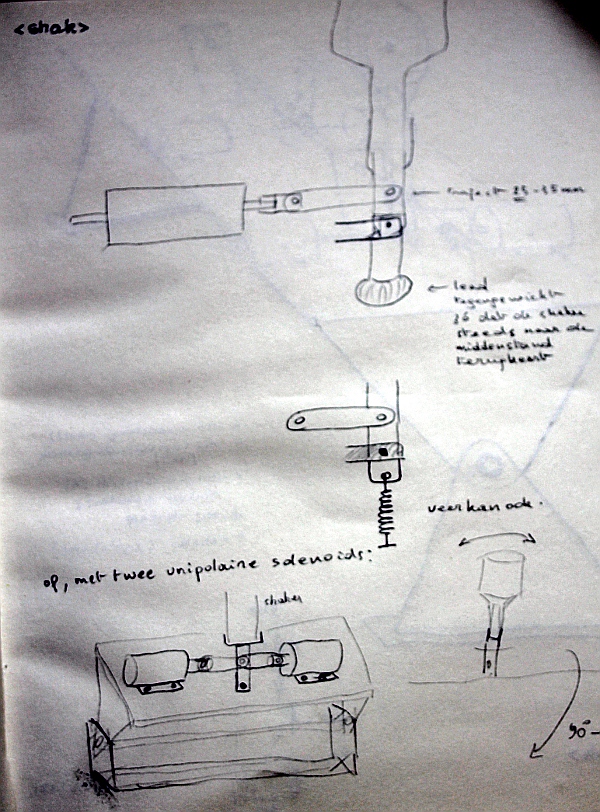 <shak>
traject 25-15 mm
lead
tegengewicht
zo dat de shaker
steeds naar de
middenstand
terugkeert
veer kan ook.
of, met twee unipolaire solenoids:
shaker
90°-